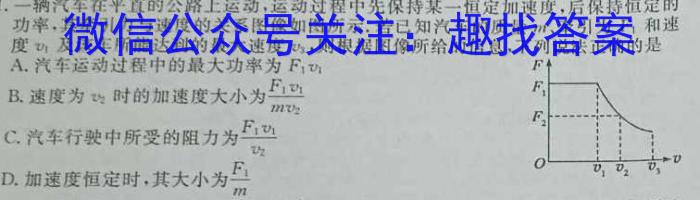 一辆汽车在平直的公路上运动,运动过程中先保持某一恒定加速度,后保持恒定的
功率,
微信公众号关注:趣找答案
A. 汽车运动过程中的最大功率为 F₁v₁
B. 速度为 v₂ 时的加速度大小为 F₁v₁/mv₂
C. 汽车行驶中所受的阻力为 F₁v₁/v₂
D. 加速度恒定时,其大小为 F₁/m
F
F₁
F₂
O v₁ v₂ v₃ v